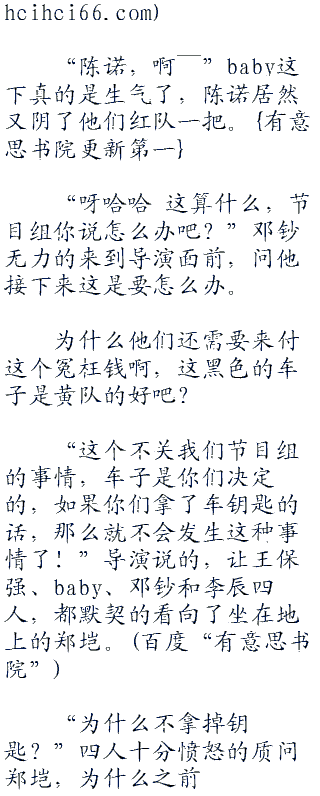 hcihci66.com)
“陈诺，啊¯¯”baby这
下真的是生气了，陈诺居然
又阴了他们红队一把。{有意
思书院更新第一}
“呀哈哈 这算什么，节
目组你说怎么办吧？”邓钞
无力的来到导演面前，问他
接下来这是要怎么办。
为什么他们还需要来付
这个冤枉钱啊，这黑色的车
子是黄队的好吧？
“这个不关我们节目组
的事情，车子是你们决定
的，如果你们拿了车钥匙的
话，那么就不会发生这种事
情了！”导演说的，让王保
强、baby、邓钞和李辰四
人，都默契的看向了坐在地
上的郑垲。(百度“有意思书
院”)
“为什么不拿掉钥
匙？”四人十分愤怒的质问
郑垲，为什么之前